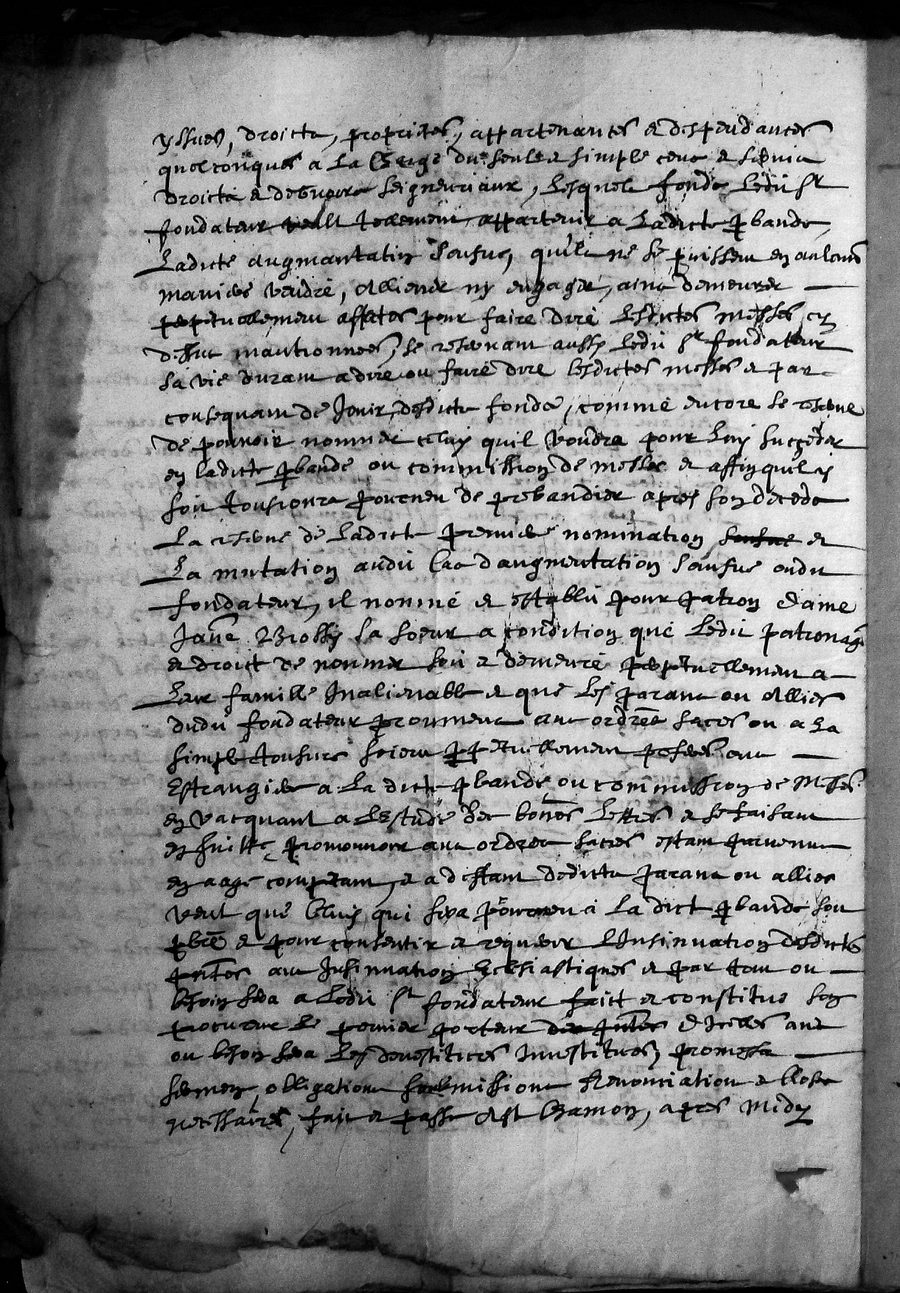 yssues, droictz, proprietes, appartenances et despendances
quelconques a la charge du seul et simple cens et servis
droictz et debvoirs seigneuriaux, lesquels fondz ledit sr
fondateur veult tellement appartenir a ladicte pbande
ladicte augmantation susd, qu'ilz ne se puissent en aulcune
maniere vendre, allienner ny engager, ains demeurer
perpetuellement affectes pour faire dire lesdictes messes cy
dessus mantionnees, se reservant aussy ledit sr fondateur
sa vie durant a dire ou faire dire lesdictes messes et par
consequant de jouir desdictz fondz, comme encore se reserve
de pouvoir nommer celuy quil voudra pour luy succeder
en ladicte pbande ou commission de messes et affin quil y
soit tousjours pourveu de prebandier apres son decedz
la reserve de ladicte premiere nomination et
la mutation audit cas d'augmentation dudit
fondateur, il nomme et establit pour patron dame
Jane Brossy sa soeur a condition que ledit patronage
et droict de nommer soit et demeure perpetuellement a
leur famille inalienable et que les parans ou allies
dudit fondateur promeus aux ordres sacres ou a la
simple tonsure soient perpetuellement preferes aux
estrangiers a ladicte pbande ou commission de messes
en vacquant a lestude des bonnes lettres et se faisant
en suitte promouvoir aux ordres sacres estant parvenus
en aage competant, et a deffaut desdictz parans ou allies
veut que celuy qui sera pourveu a ladict pbande soit
pbre et pour consentir et requerir l'insinuation desdictes
pntes aux insinuations ecclesiastiques et par tout ou
besoin sera a ledit sr fondateur faict et constitue son
procureur le premier porteur des pntes d'icelles avec
ou besoin sera les devestitures investitures, promesses
sermen, obligations submissions renonciations et clauses
necessaires, fait et passe apres midy